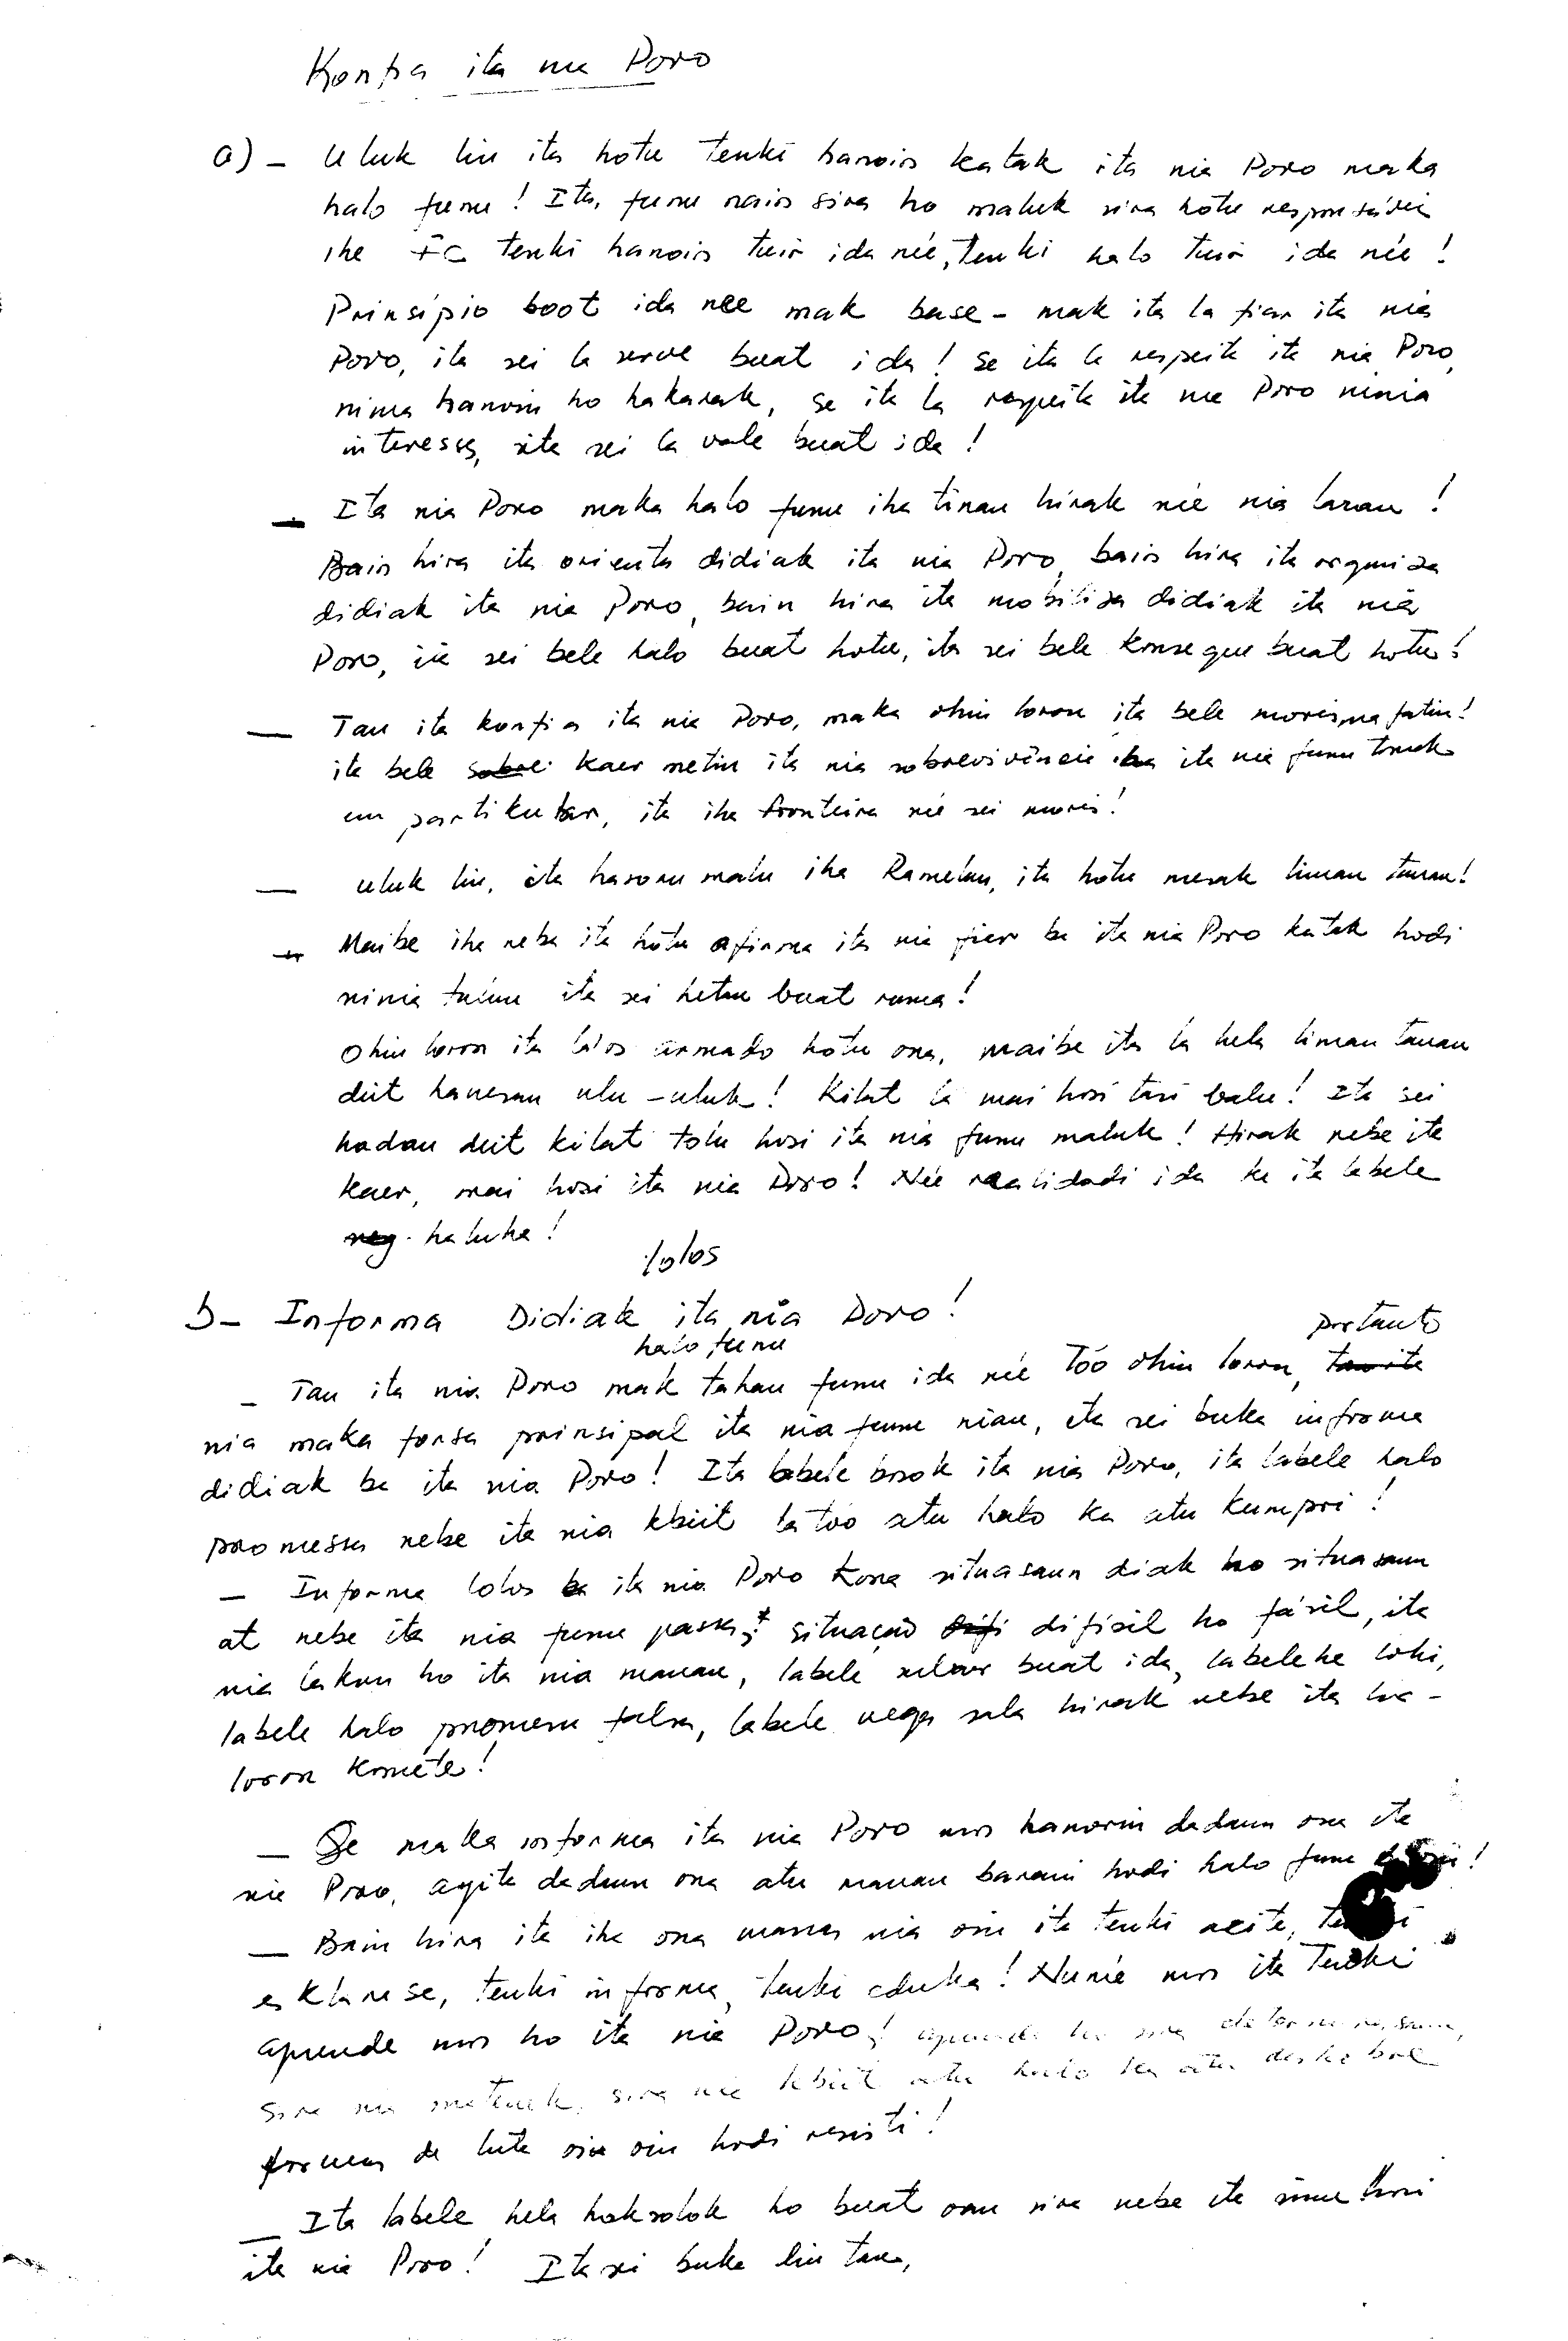 Konfia ita nia Povo
a) - Uluk liu ita hotu tenki hanoin katak ita nia Povo maka
halo funu! Ita, funu nain sira ho maluk sira hotu responsávei
iha FC tenki hanoin tuir ida née, tenki halo tuir ida née!
Prinsípio boot ida nee mak base - mak ita la fiar ita nia
Povo, ita sei la serve buat ida! Se ita la respeita ita nia Povo,
ninia hanoin ho hakarak, se ita la respeita ita nia Povo ninia
interesses, ita sei la vale buat ida!
- Ita nia Povo maka halo funu iha tinan hirak née nia laran!
Bain hira ita orienta didiak ita nia Povo, bain hira ita organiza
didiak ita nia Povo, bain hira ita mobiliza didiak ita nia
Povo, ita sei bele halo buat hotu, ita sei bele konsegue buat hotu!
- Tau ita konfia ita nia Povo, maka ohin loron ita bele moris nafatin!
ita bele kaer metin ita nia sobrevivência ita nia funu tomak
em partikular, ita iha fronteira née sei moris!
- Uluk liu, ita hasoru malu iha Ramelau, ita hotu mesak liman tanan!
- Maibe iha neba ita hotu afirma ita nia fiar ba ita nia Povo katak hodi
ninia tulun ita sei hetan buat ruma!
Ohin loron ita la'os armado hotu ona, maibe ita la hela liman tanan
deit hanesan ulu-uluk! Kilat la mai hosi tasi balu! Ita sei
hadau deit kilat tolu hosi ita nia funu maluk! Hirak nebe ita
kaer, mai hosi ita nia Povo! Née realidadi ida ke ita labele
haluha!
lolos
b - Informa Didiak ita nia Povo!
halo funu
portanto
- Tau ita nia Povo mak tahan funu ida née tóo ohin loron,
nia maka forsa prinsipal ita nia funu nian, ita sei buka informa
didiak ba ita nia Povo! Ita labele bosok ita nia Povo, ita labele halo
promessa nebe ita nia kbiit la tóo atu halo ka atu kumpri!
- Informa lolos ita nia Povo kona situasaun diak ho situasaun
at nebe ita nia funu passa; situação difísil ho fásil, ita
nia lakon ho ita nia manan, labele subar buat ida, labele he lohi,
labele halo promessa falsa, labele nega sala hirak nebe ita lor-
loron komete!
- Se maka informa ita nia Povo mos hanorin dadaun ona ita
nia Povo, agita dadaun ona atu manan barani hodi halo funu
- Bain hira ita iha ona massa nia oin ita tenki aseita,
esklarese, tenki informa, tenki eduka! Nunée mos ita tenki
aprende mos ho ita nia Povo! aprende ho sira determinasaun,
sira nia matenek, sira nia kbiit atu halo ka atu deskobre
formas de luta oin oin hodi resisti!
- Ita labele hela haksolok ho buat oan sira nebe ita simu hosi
ita nia Povo! Ita sei buka liu tan,